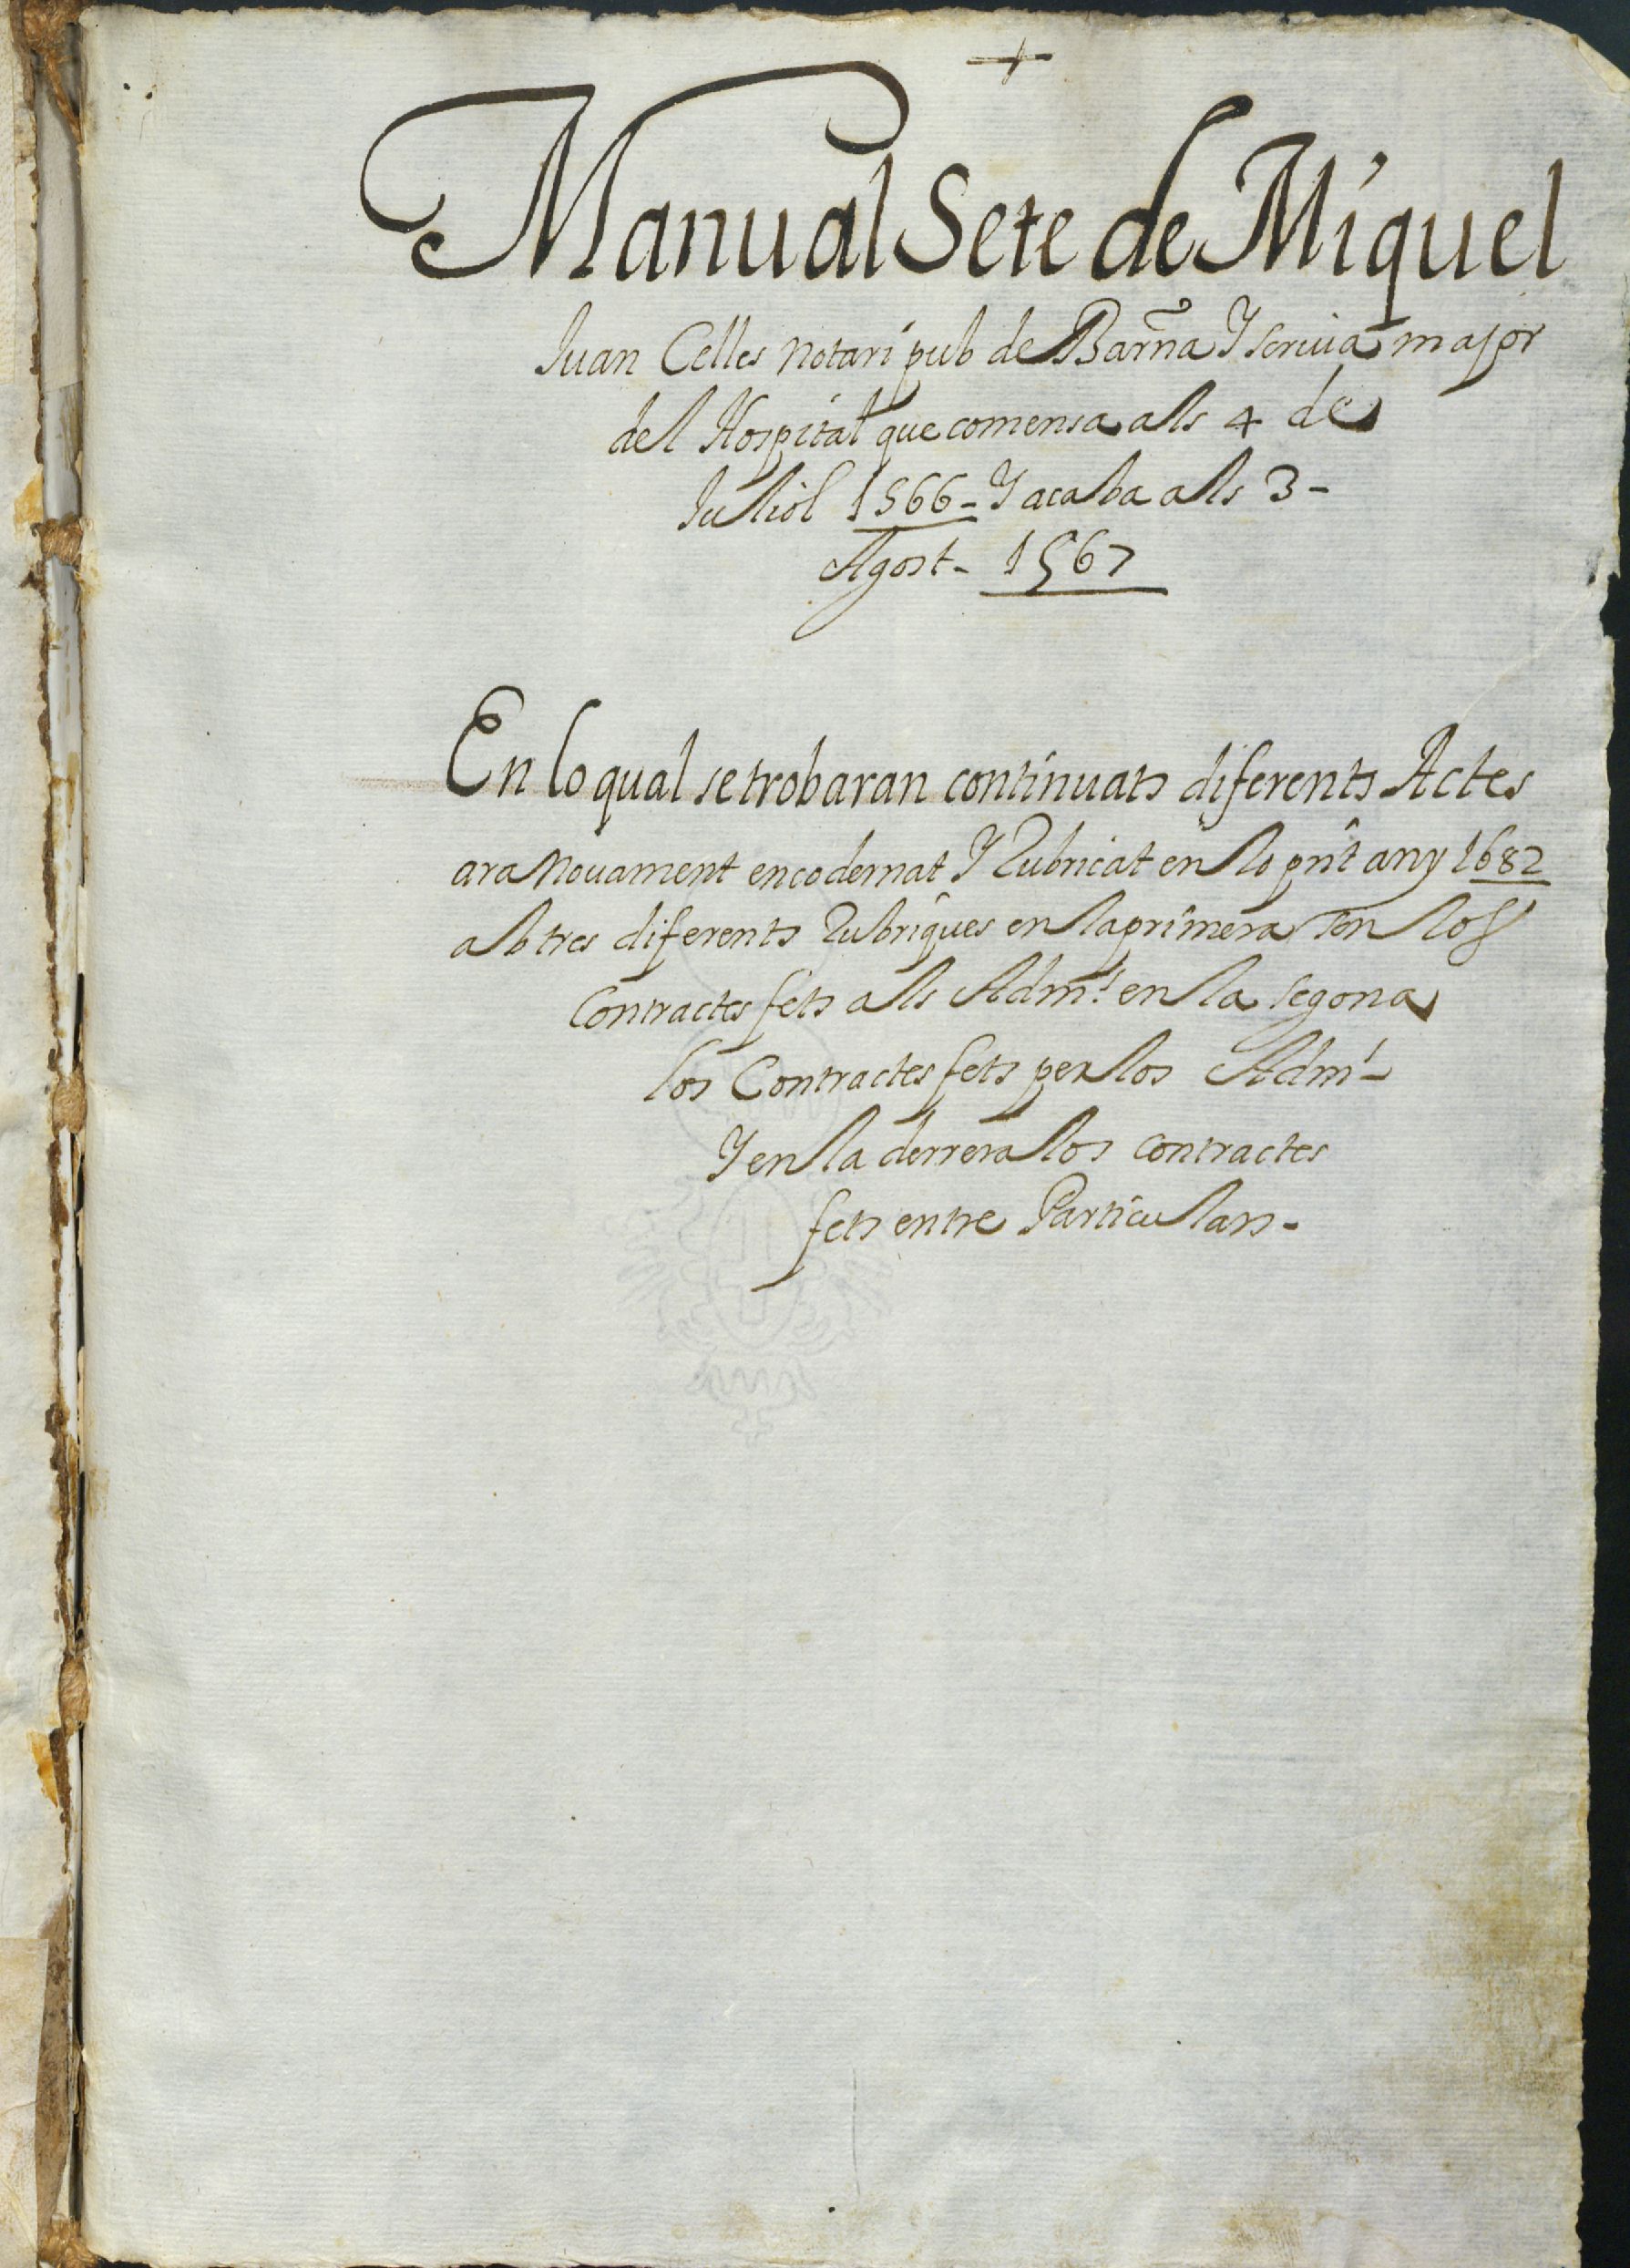 +
Manual Sete de Miquel
Juan Celles notari pub de Barña Y scriuá major
del Hospital que comensa als 4 de
Juliol 1566 - Y acaba als 3 -
Agost - 1567
En lo qual se trobaran continuats diferents Actes
ara nouament encodernat Y Rubricat en lo pñt any 1682
ab tres diferents Rubriques en la primera son los
Contractes fets als Adm.ˢ en la segona
los Contractes fets per los Admˢ -
Y en la derrera los contractes
fets entre Particulars -